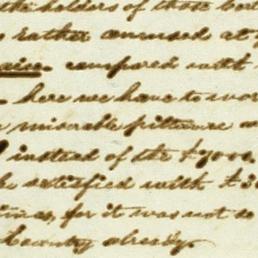 the holders of those
rather amused at
compared with
here we have to wor
miserable pittance
instead of the £7000.
be satisfied with £30
times, for it was not so
Country already.